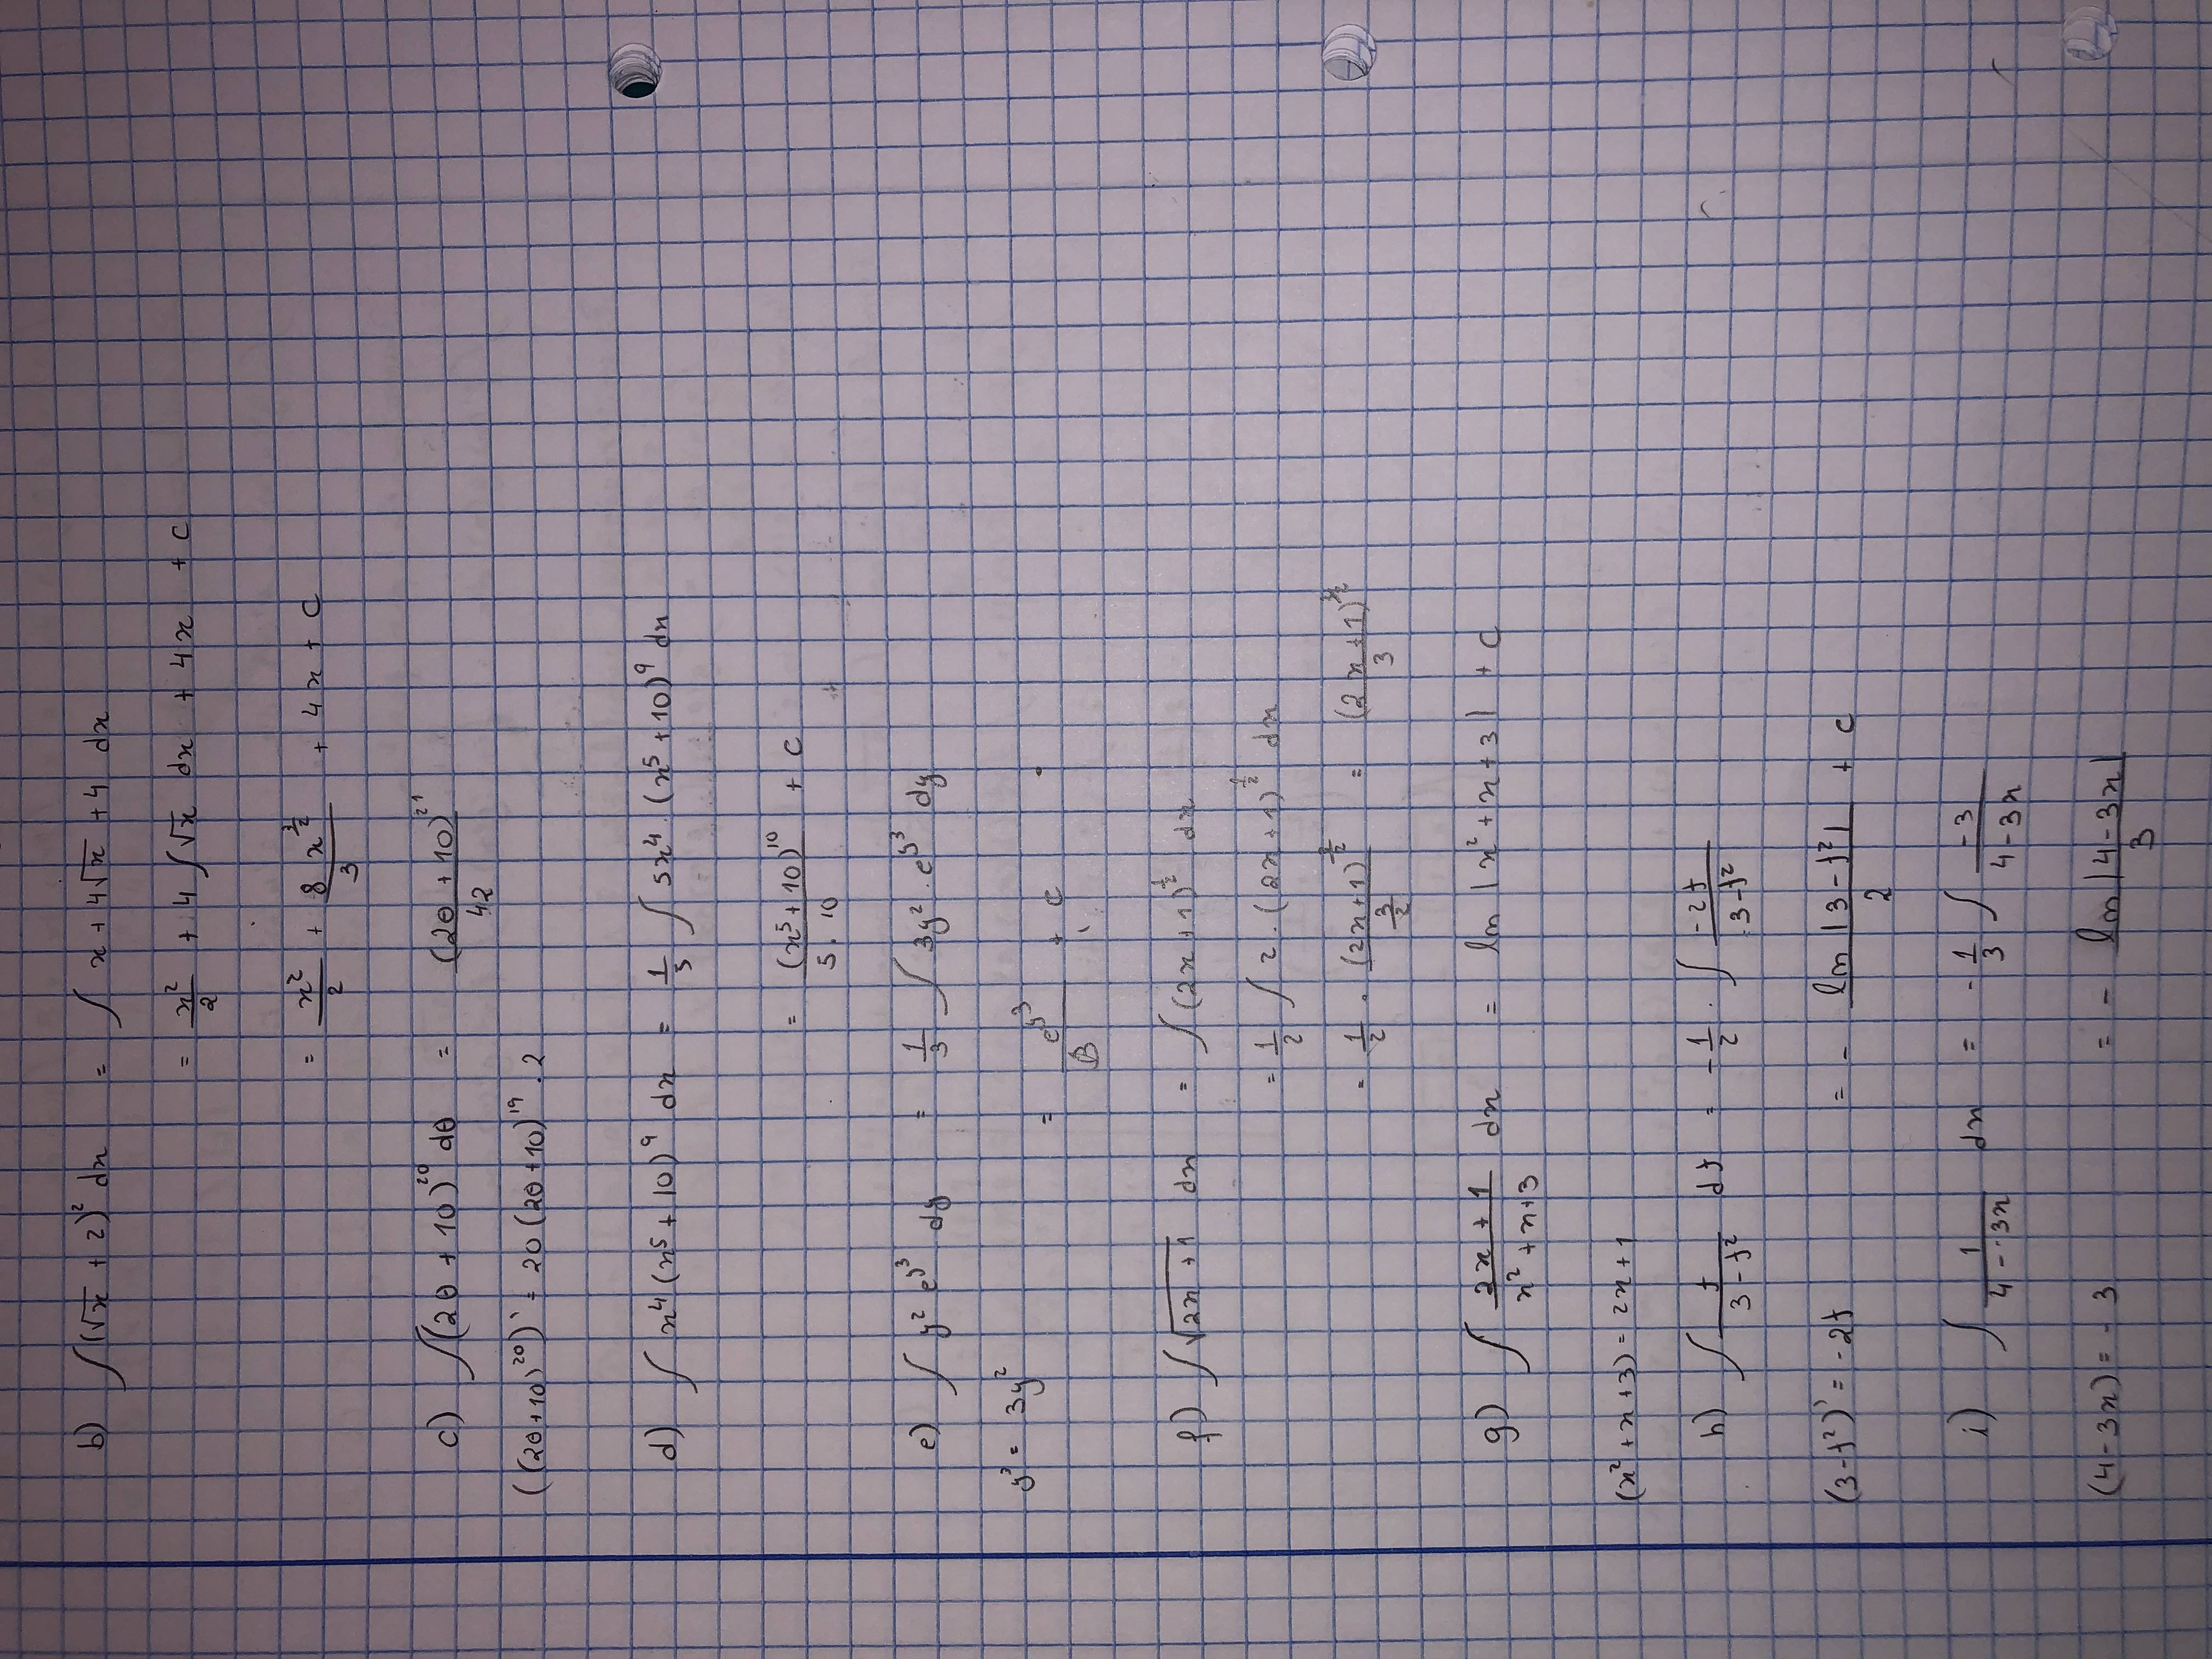 b) ∫(√x + 2)² dx = ∫ x + 4√x + 4 dx
= x²/2 + 4 ∫√x dx + 4x + c
= x²/2 + 8 x^(3/2)/3 + 4x + C
c) ∫(2θ + 10)^20 dθ = (2θ + 10)^21/42
((2θ+10)^20)' = 20(2θ+10)^19 · 2
d) ∫ x⁴ (x⁵ + 10)⁹ dx = 1/5 ∫ 5x⁴ · (x⁵ + 10)⁹ dx
= (x⁵ + 10)^10/(5 · 10) + C
e) ∫ y² e^(y³) dy = 1/3 ∫ 3y² · e^(y³) dy
y³ = 3y²
= e^(y³)/3 + C
f) ∫ √(2x + 1) dx = ∫ (2x + 1)^(1/2) dx
= 1/2 ∫ 2 · (2x + 1)^(1/2) dx
= 1/2 · (2x+1)^(3/2)/(3/2) = (2x+1)^(3/2)/3
g) ∫ (2x + 1)/(x² + x + 3) dx = ln |x² + x + 3| + C
(x² + x + 3) = 2x + 1
h) ∫ t/(3 - t²) dt = -1/2 · ∫ -2t/(3 - t²)
(3 - t²)' = -2t = - ln |3 - t²|/2 + c
i) ∫ 1/(4 - 3x) dx = -1/3 ∫ -3/(4 - 3x)
(4 - 3x) = -3 = - ln |4 - 3x|/3